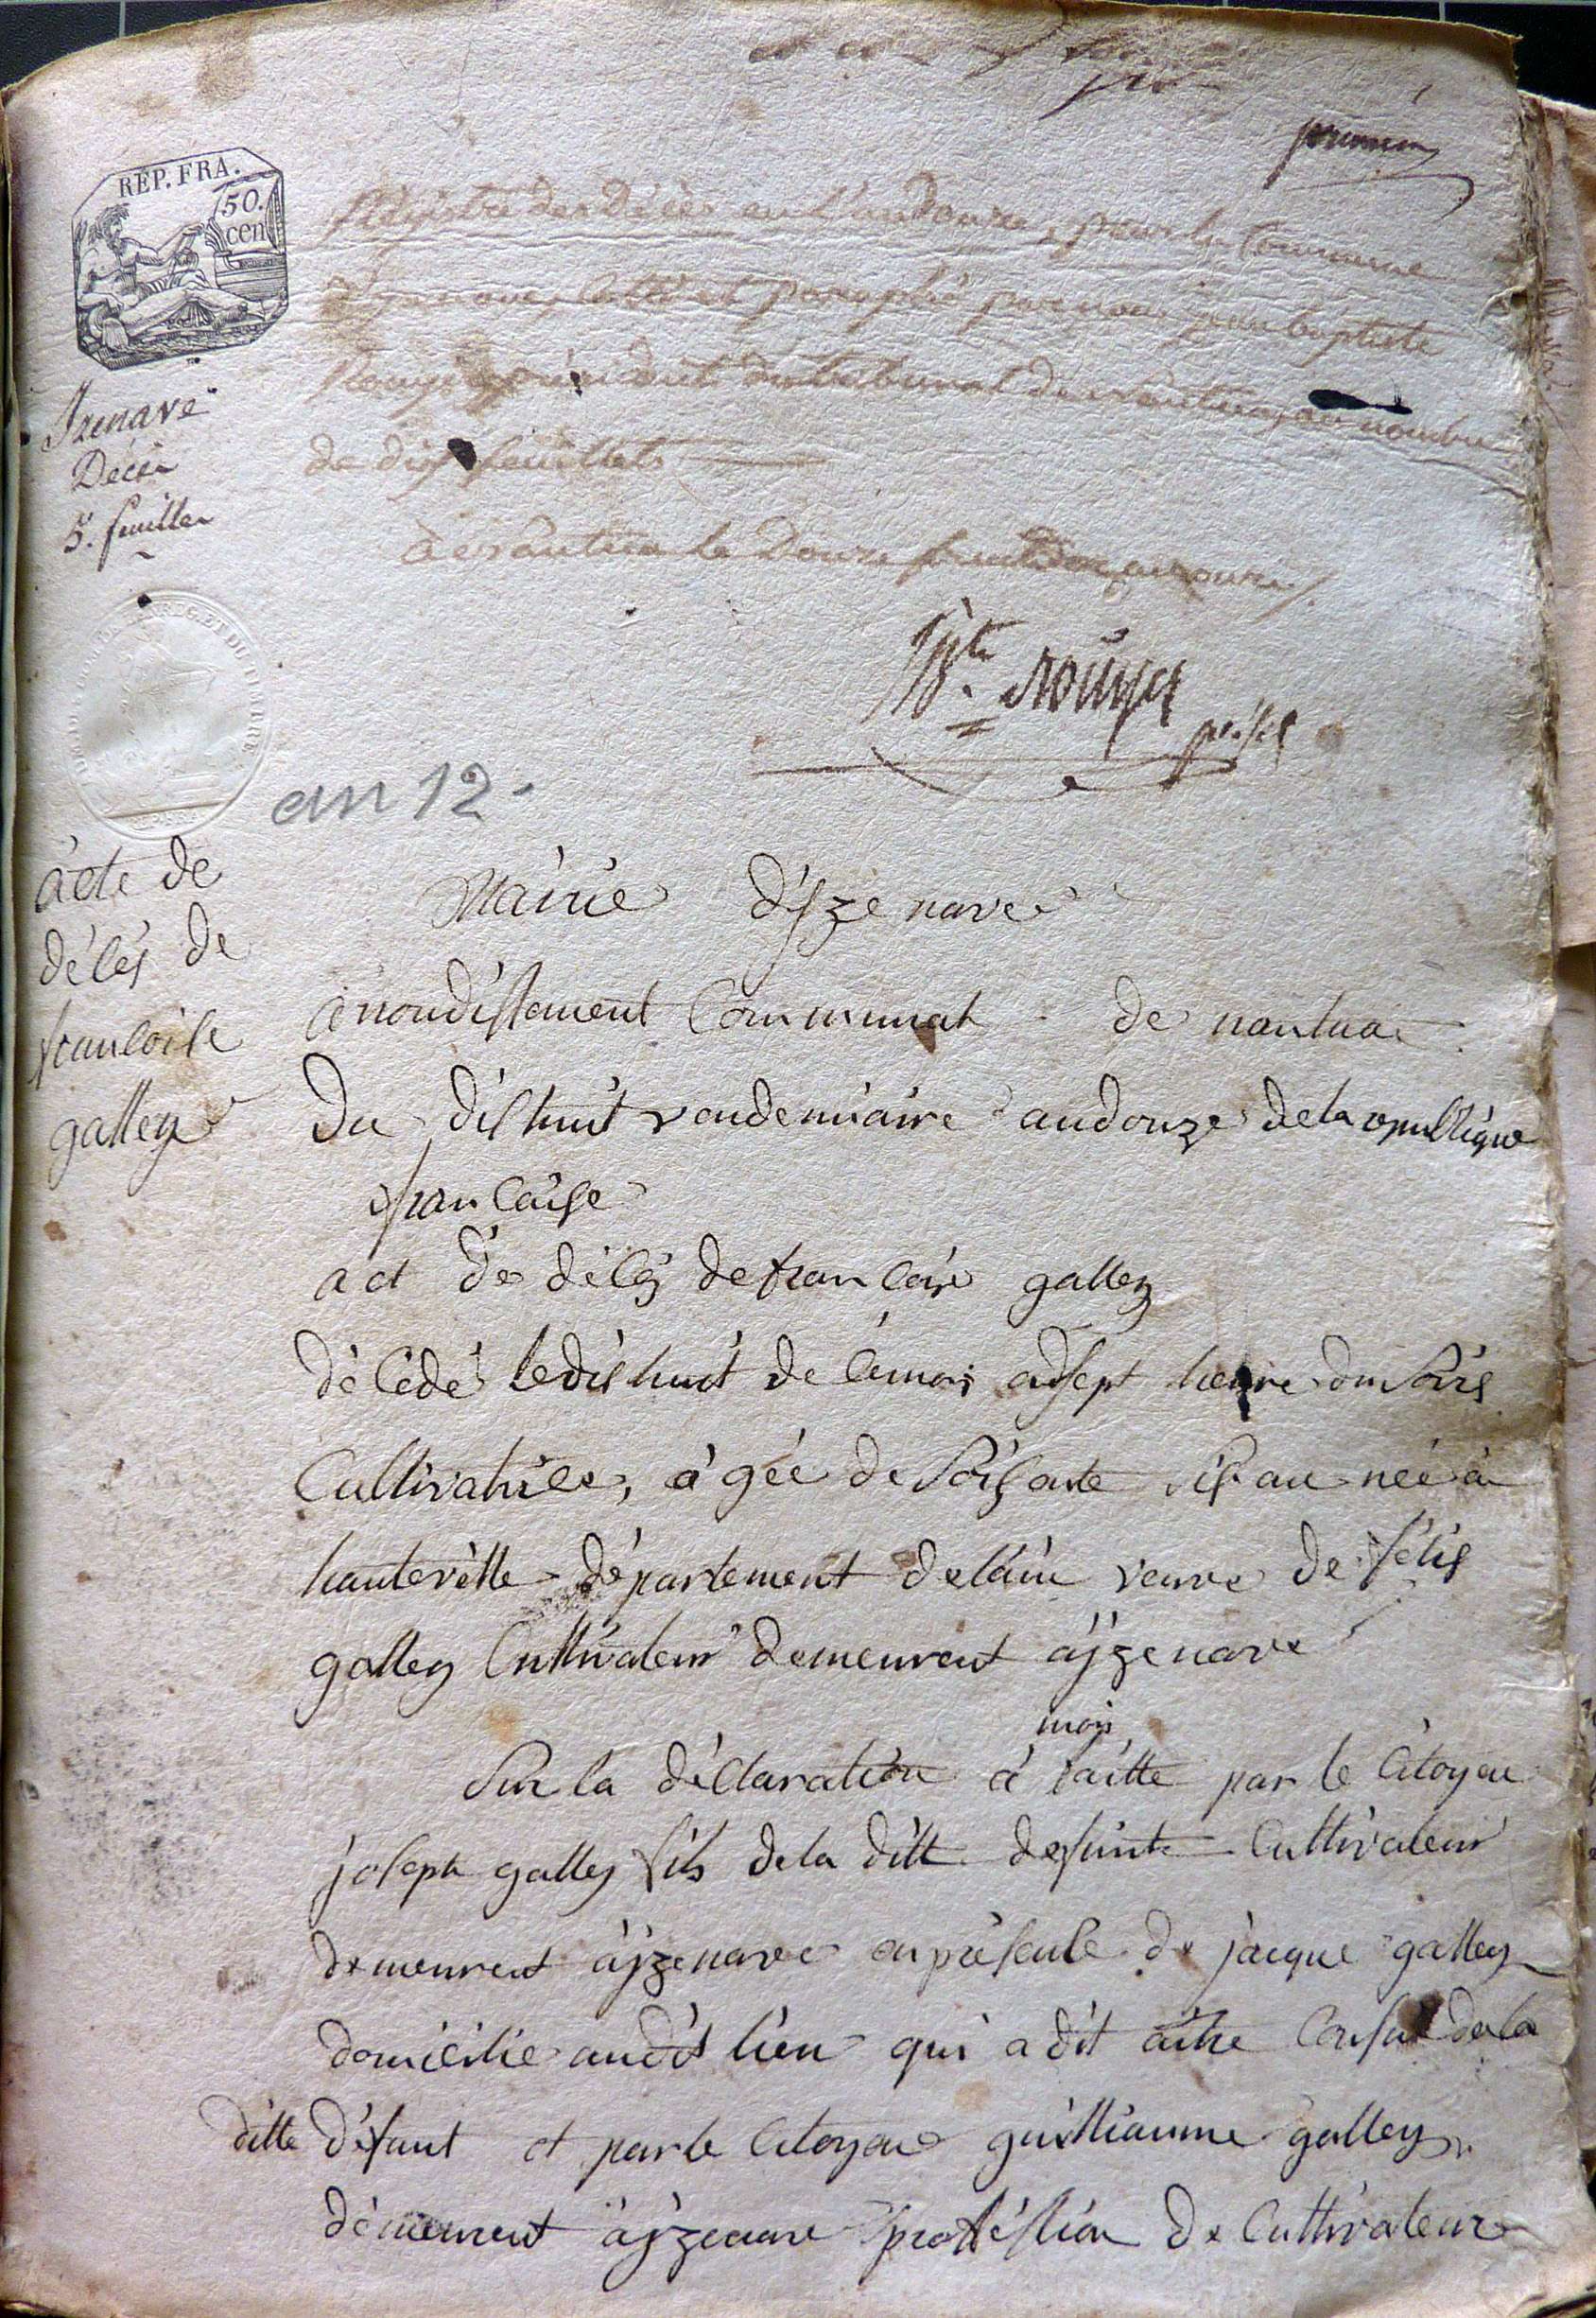 premier
REP. FRA.
50.
cen
Registre des Décès en l'an douze, pour la Commune
d'yzenave, cotté et paraphé par nous jean baptiste
Rouyer président du tribunal de nantua, au nombre
de dix feuillets
à nantua le Douze fructidor an onze
Izenave
Décès
5. feuilles
Bte rouyer
an 12.
acte de
délés de
francoise
galley
Mairie d'yzenave
arrondissement Communal de nantua
Du dishuit vendemiaire an douze de la republique
francaise
act de délés de francoise galley
décédé le dishuit de ce mois a sept heure du soire
Cultivatrice, agée de soisante sis an née à
hauteville département de l'ain veuve de félis
galley Cultivateur demeurent a yzenave
Sur la déclaration à moi faitte par le Citoyen
joseph galley fils de la ditt defunte Cultivateur
demeurent a yzenave en présence de jacque galley
domicilie audit lieu qui a dit aitre de la
ditte défunt et par le Citoyen guilliaume galley
demeurent a yzenave profession de Cultivateur